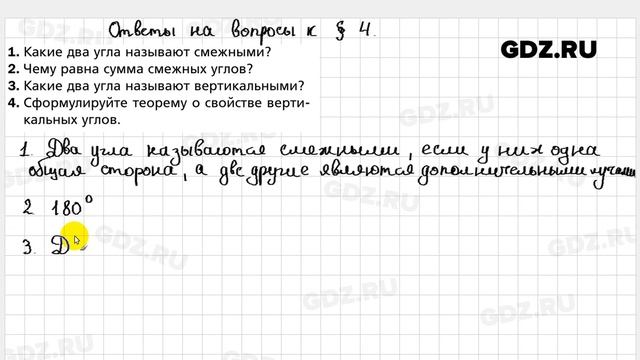 Ответы на вопросы к § 4.
GDZ.RU
1. Какие два угла называют смежными?
2. Чему равна сумма смежных углов?
3. Какие два угла называют вертикальными?
4. Сформулируйте теорему о свойстве верти-
кальных углов.
1. Два угла называются смежными, если у них одна
общая сторона, а две другие являются дополнительными лучами
2 180°
3. Д